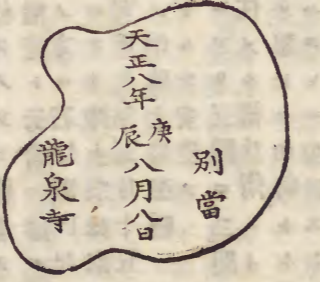 別當
天正八年庚辰八月八日
龍泉寺